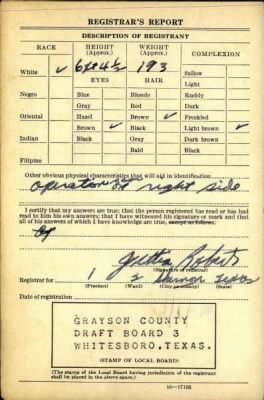 REGISTRAR'S REPORT
DESCRIPTION OF REGISTRANT
RACE HEIGHT (Approx.) WEIGHT (Approx.) COMPLEXION
White ✓ 6ft 4½ 193 Sallow
EYES HAIR Light
Negro Blue Blonde Ruddy
Gray Red Dark
Oriental Hazel Brown ✓ Freckled
Brown ✓ Black Light brown ✓
Indian Black Gray Dark brown
Bald Black
Filipino
Other obvious physical characteristics that will aid in identification
operation right side
I certify that my answers are true; that the person registered has read or has had
read to him his own answers; that I have witnessed his signature or mark and that
all of his answers of which I have knowledge are true, except as follows:
(Signature of registrar)
Registrar for 1 2 Sherman Texas
(Precinct) (Ward) (City or county) (State)
Date of registration
GRAYSON COUNTY
DRAFT BOARD 3
WHITESBORO, TEXAS.
(STAMP OF LOCAL BOARD)
(The stamp of the Local Board having jurisdiction of the registrant
shall be placed in the above space.)